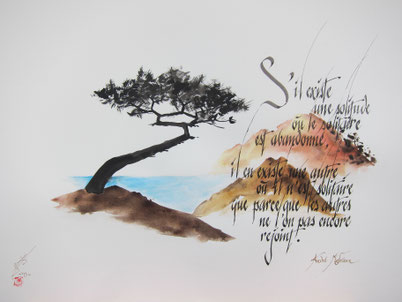 S'il existe
une solitude
où le solitaire
est abandonné,
il en existe une autre
où il n'est solitaire
que parce que les autres
ne l'on pas encore
rejoint!
André